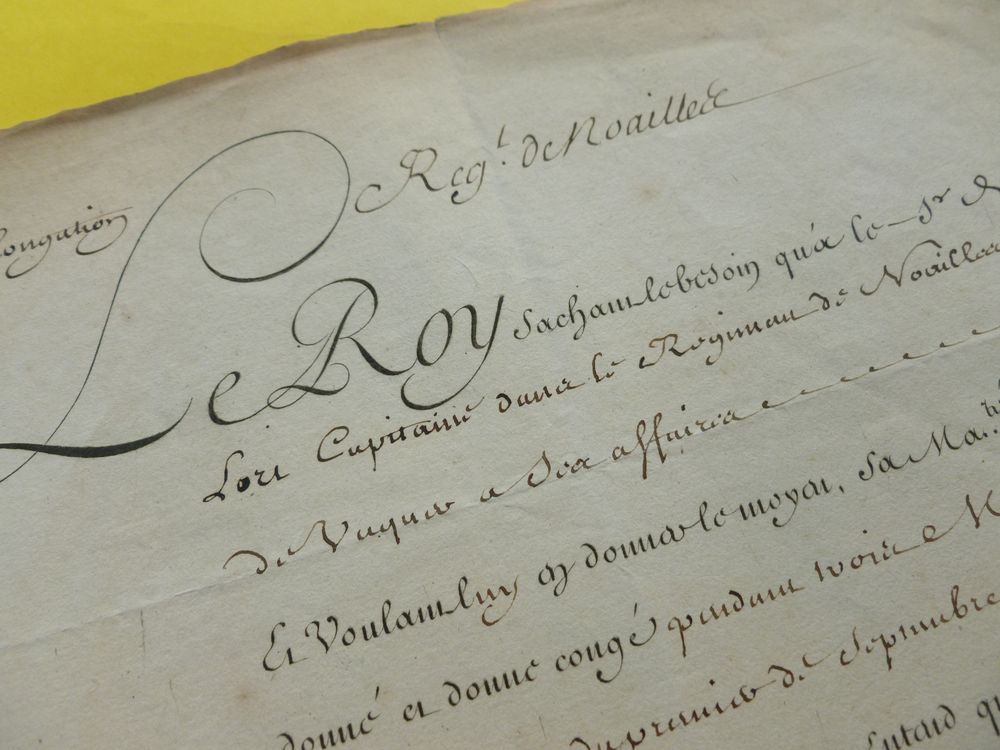 Reg.t de Noailles
longation
Le Roy sachant le besoin qu'a le Sr de
Lort Capitaine dans le Regiment de Noailles
de Vaquer a Ses affaires
Et Voulant luy en donner le moyen, Sa Ma.té
donné et donne congé pendant trois M
du premier de Septembre